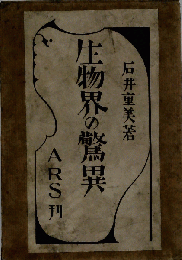 石井重美著
生物界の驚異
ARS刊